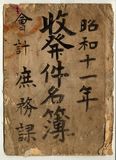 昭和十一年
收發件名簿
會計
庶務課